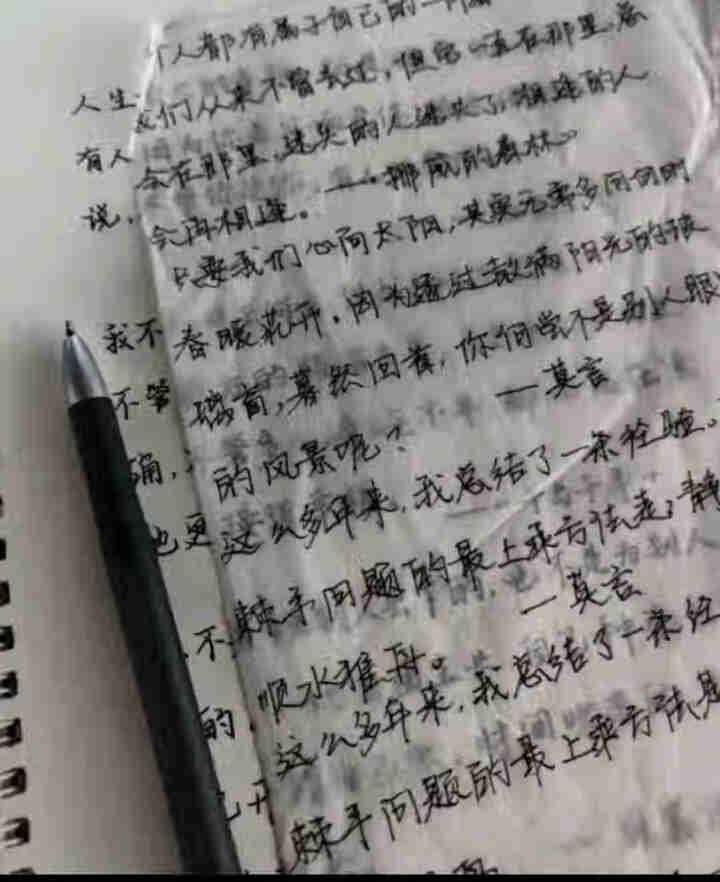 人都有属于自己的一
我们从来不曾去过,但它一直在那里,总
会在那里,迷失的人迷失了,相逢的人
会再相逢。——挪威的森林
只要我们心向太阳,其实元素多同
春暖花开。因为透过
首,蓦然回首,你何尝不是别人眼
的风景呢? —莫言
这么多年来,我总结了一条经验。
棘手问题的最上乘方法是,静
顺水推舟。 —莫言
这么多年来,我总结了一条经
棘手问题的最上乘方法是
人生
有人
说,
我不
不管
确,
也更
不
的